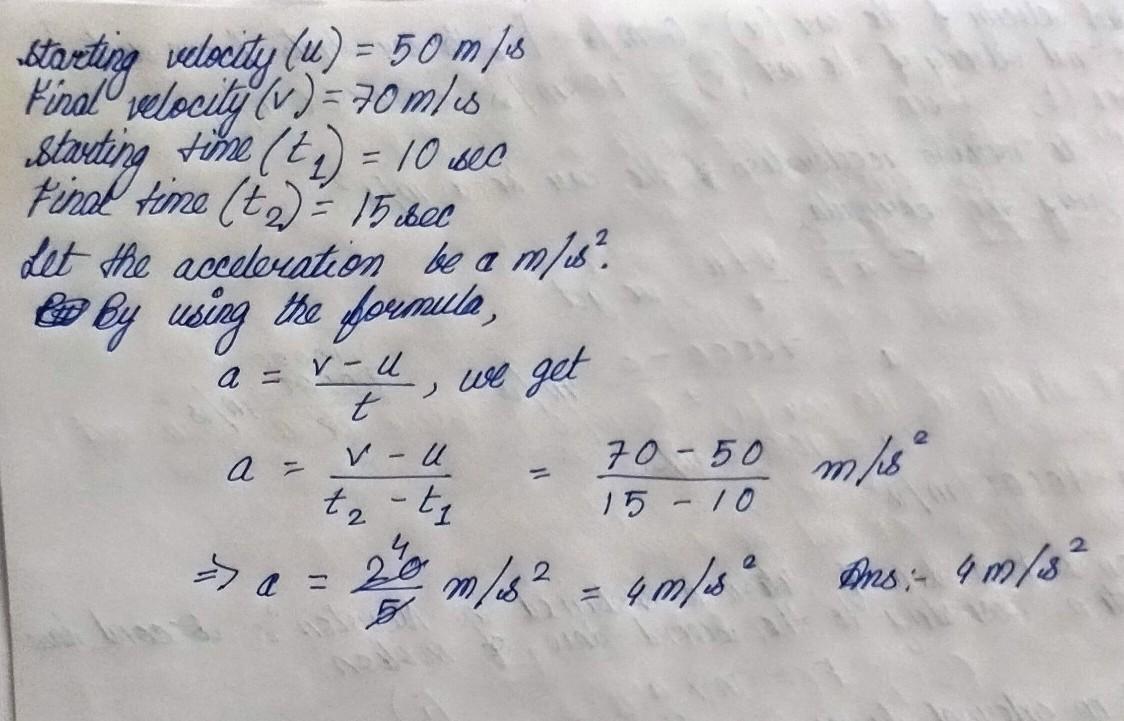 Starting velocity (u) = 50 m/s
Final velocity (v) = 70 m/s
Starting time (t₁) = 10 sec
Final time (t₂) = 15 sec
Let the acceleration be a m/s².
By using the formula,
a = (v - u)/t, we get
a = (v - u)/(t₂ - t₁) = (70 - 50)/(15 - 10) m/s²
⇒ a = 20/5 4 m/s² = 4 m/s² Ans:- 4 m/s²